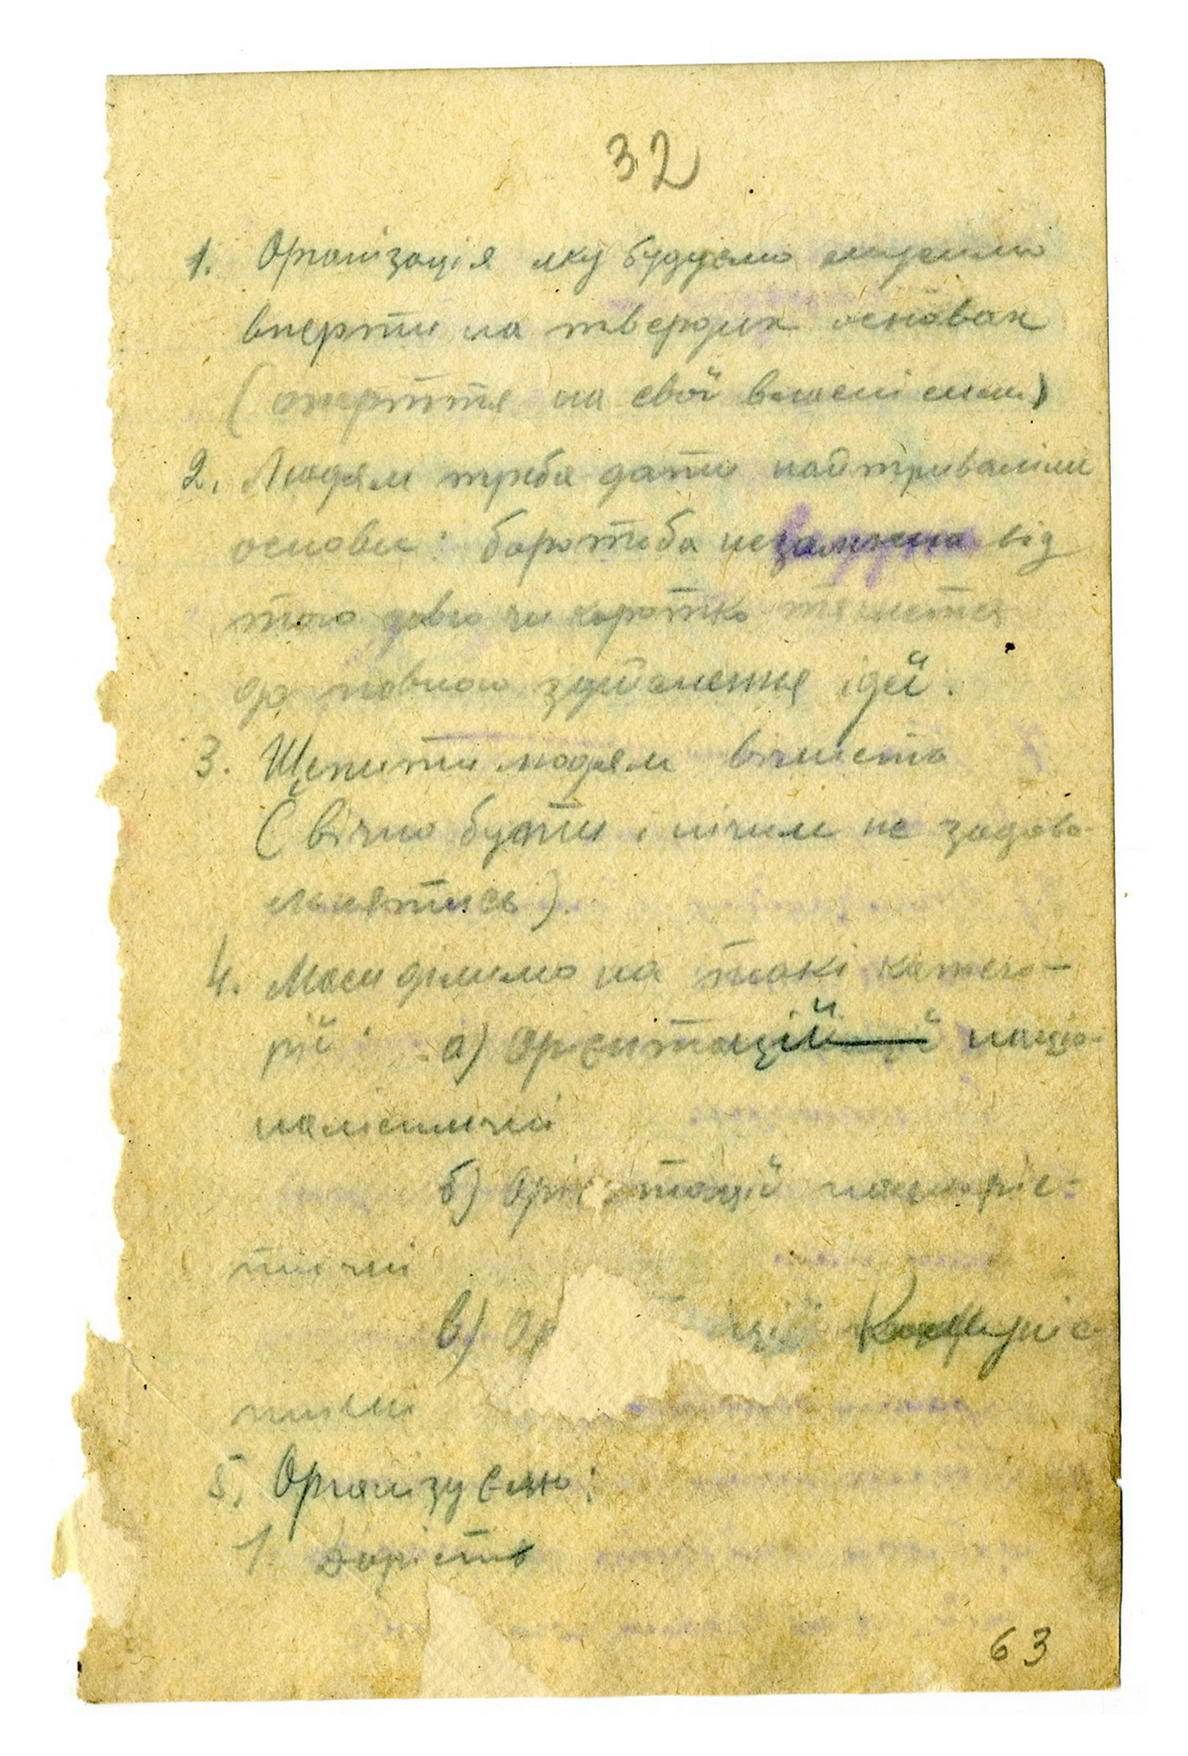 32
1. Організація яку будуємо мусимо
вперти на твердих основах
(опертя на свої власні сили)
2. Людям треба дати найтриваліші
основи: боротьба незалежна від
того довго чи коротко тягнеться
до повного здійснення ідеї.
3. Щепити людям вічність
(вічно бути і нічим не задово-
льнятись).
4. Маси ділимо на такі катего-
рії: а) орієнтацій націо-
налістичні
б) Оріє тацій
тичні
в) Ор ацій Комуніс
тичні
5. Організуємо:
1 Дорість
63